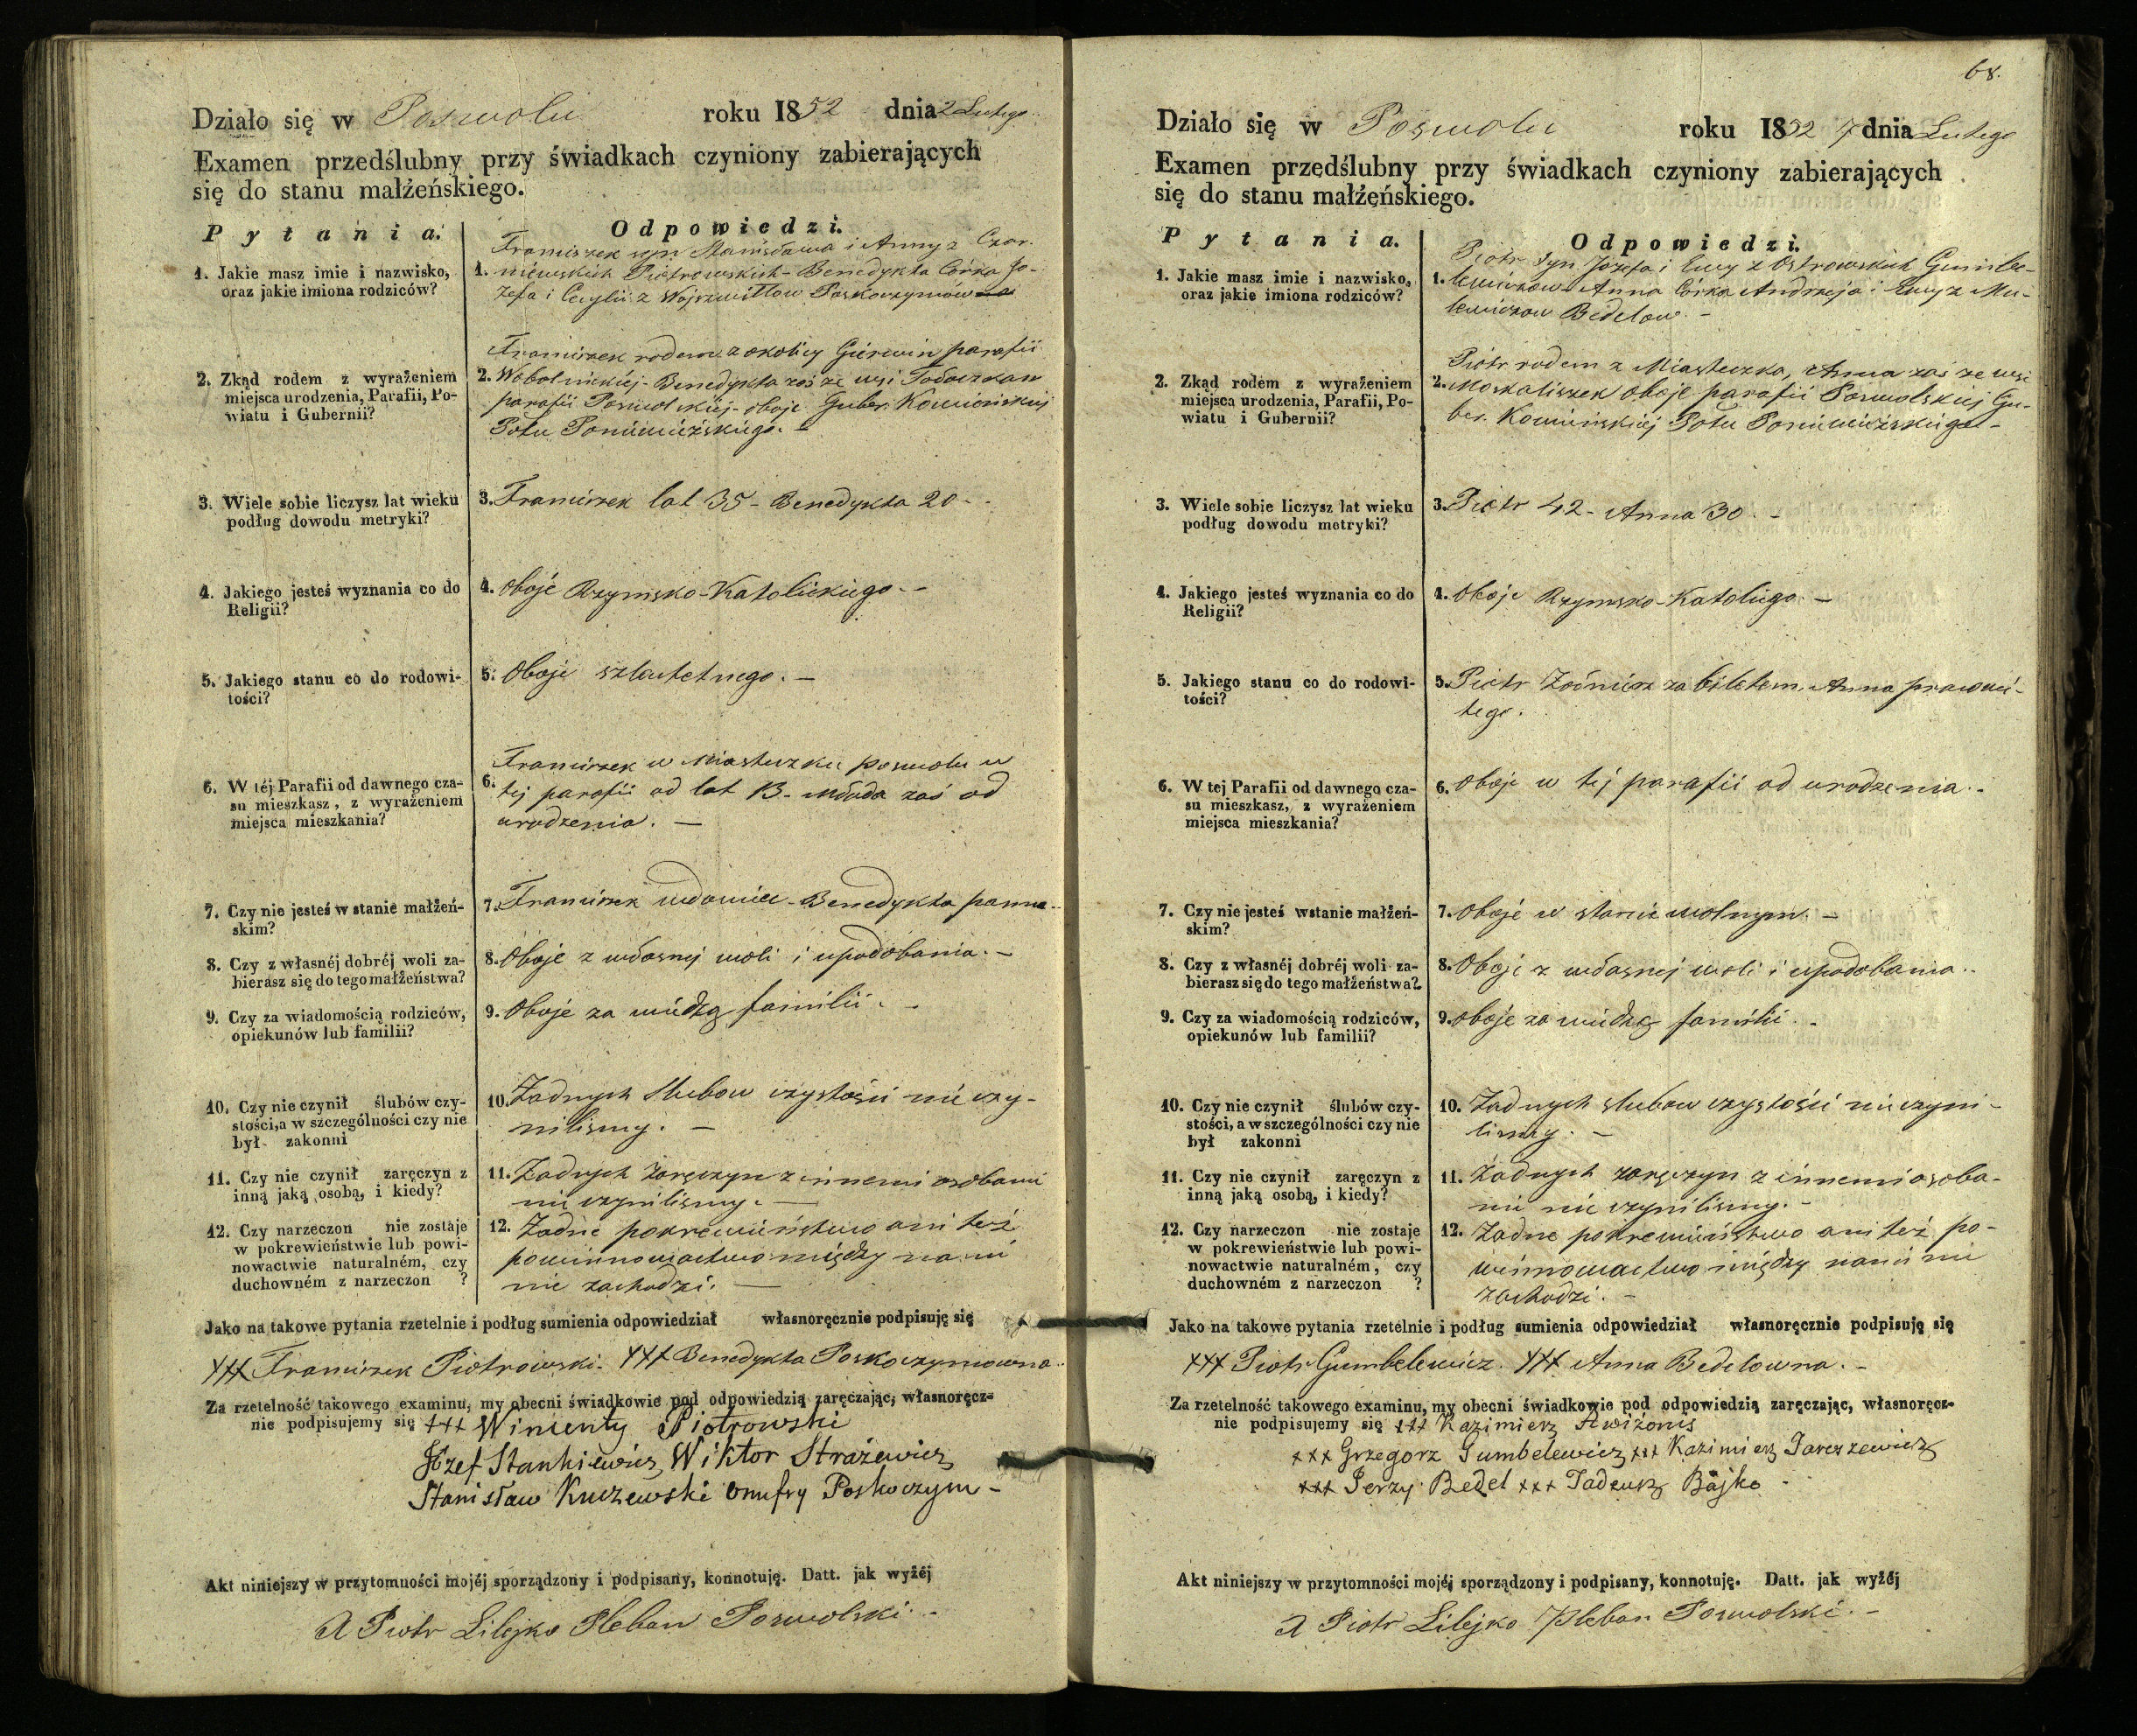 Działo się w Poswolu roku 1852 dnia 2 Lutego
Examen przedślubny przy świadkach czyniony zabierających
się do stanu małżeńskiego.
Pytania. Odpowiedzi.
1. Jakie masz imie i nazwisko,
oraz jakie imiona rodziców?
Franciszek syn Stanisława i Anny z Czar-
1. niewskich Piotrowskich - Benedykta Córka Jo-
zefa i Cecylii z Wojszwiłłow Poskoczymów
2. Zkąd rodem z wyrażeniem
miejsca urodzenia, Parafii, Po-
wiatu i Gubernii?
Franciszek rodem z okolicy Gierwin parafii
2. Wobolnickiej - Benedykta zaś ze wsi
parafii Poswolskiej - oboje Guber. Kowieńskiej
Potu Poniewieżskiego. -
3. Wiele sobie liczysz lat wieku
podług dowodu metryki?
3. Franciszek lat 35 - Benedykta 20 -
4. Jakiego jesteś wyznania co do
Religii?
4. Oboje Rzymsko-Katolickiego. -
5. Jakiego stanu co do rodowi-
tości?
5. Oboje szlachetnego. -
6. W téj Parafii od dawnego cza-
su mieszkasz, z wyrażeniem
miejsca mieszkania?
Franciszek w Miasteczku poswolu w
6. tej parafii od lat 13 - Młoda zaś od
urodzenia. -
7. Czy nie jesteś w stanie małżeń-
skim?
7. Franciszek wdowiec - Benedykta panna -
8. Czy z własnéj dobréj woli za-
bierasz się do tego małżeństwa?
8. Oboje z własnej woli i upodobania. -
9. Czy za wiadomością rodziców,
opiekunów lub familii?
9. Oboje za wiedzą familii. -
10. Czy nie czynił ślubów czy-
stości, a w szczególności czy nie
był zakonni
10. Żadnych slubow czystości nie czy-
nilismy. -
11. Czy nie czynił zaręczyn z
inną jaką osobą, i kiedy?
11. Żadnych zaręczyn z innemi osobami
nie czynilismy. -
12. Czy narzeczon nie zostaje
w pokrewieństwie lub powi-
nowactwie naturalném, czy
duchowném z narzeczon ?
12. Żadne pokrewieństwo ani też
powinnowactwo między nami
nie zachodzi. -
Jako na takowe pytania rzetelnie i podług sumienia odpowiedział własnoręcznie podpisuję się
XXX Franciszek Piotrowski - XXX Benedykta Poskoczymowna -
Za rzetelność takowego examinu, my obecni świadkowie pod odpowiedzią zaręczając, własnoręcz-
nie podpisujemy się +++ Wincenty Piotrowski
Józef Stankiewicz, Wiktor Strażewicz,
Stanisław Kuczewski Onufry Poskoczym -
Akt niniejszy w przytomności mojéj sporządzony i podpisany, konnotuję. Datt. jak wyżéj
X Piotr Lilejko Pleban Poswolski. -
68.
Działo się w Poswolu roku 1852 7 dnia Lutego
Examen przedślubny przy świadkach czyniony zabierających
się do stanu małżeńskiego.
Pytania. Odpowiedzi.
1. Jakie masz imie i nazwisko,
oraz jakie imiona rodziców?
Piotr Syn Józefa i Ewy z Ostrowskich Gumbe-
1. lewiczow - Anna Córka Andrzeja i Ewy z Mi-
lewiczow Bedelow. -
2. Zkąd rodem z wyrażeniem
miejsca urodzenia, Parafii, Po-
wiatu i Gubernii?
Piotr rodem z Miasteczka, Anna zaś ze wsi
2. Moskaliszek oboje parafii Poswolskiej Gu-
ber. Kowieńskiej Potu Poniewieżskiego -
3. Wiele sobie liczysz lat wieku
podług dowodu metryki?
3. Piotr 42 - Anna 30. -
4. Jakiego jesteś wyznania co do
Religii?
4. Oboje Rzymsko-Katoligo. -
5. Jakiego stanu co do rodowi-
tości?
5. Piotr Żołnierz za biletem, Anna prawowi-
tego.
6. W tej Parafii od dawnego cza-
su mieszkasz, z wyrażeniem
miejsca mieszkania?
6. Oboje w tej parafii od urodzenia. -
7. Czy nie jesteś wstanie małżeń-
skim?
7. Oboje w stanie wolnym. -
8. Czy z własnéj dobréj woli za-
bierasz się do tego małżeństwa?
8. Oboje z własnej woli i upodobania. -
9. Czy za wiadomością rodziców,
opiekunów lub familii?
9. Oboje za wiedzą familii. -
10. Czy nie czynił ślubów czy-
stości, a w szczególności czy nie
był zakonni
10. Żadnych slubow czystości nie czyni-
lismy. -
11. Czy nie czynił zaręczyn z
inną jaką osobą, i kiedy?
11. Żadnych zaręczyn z innemi osoba-
mi nie czynilismy. -
12. Czy narzeczon nie zostaje
w pokrewieństwie lub powi-
nowactwie naturalném, czy
duchowném z narzeczon ?
12. Żadne pokrewieństwo ani też po-
winnowactwo między nami nie
zachodzi. -
Jako na takowe pytania rzetelnie i podług sumienia odpowiedział własnoręcznie podpisuję się
XXX Piotr Gumbelewicz. XXX Anna Bedelowna. -
Za rzetelność takowego examinu, my obecni świadkowie pod odpowiedzią zaręczając, własnoręcz-
nie podpisujemy się +++ Kazimierz Awiżonis
xxx Grzegorz Gumbelewicz xxx Kazimierz Jareszewicz
xxx Jerzy Bedel xxx Tadeusz Bojko -
Akt niniejszy w przytomności mojéj sporządzony i podpisany, konnotuję. Datt. jak wyżéj
X Piotr Lilejko Pleban Poswolski. -